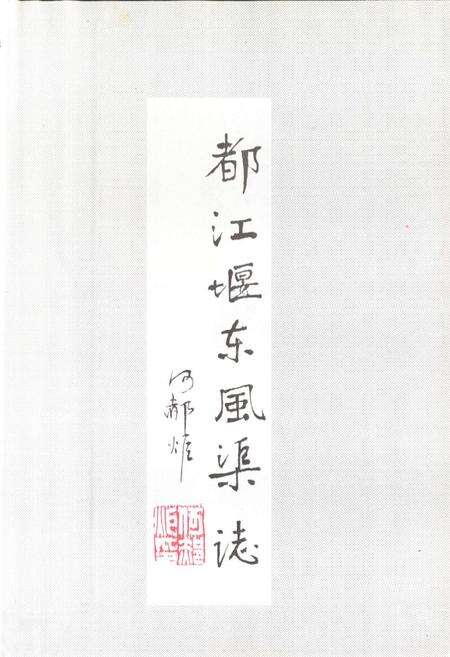 都江堰东風渠誌
何郝炬